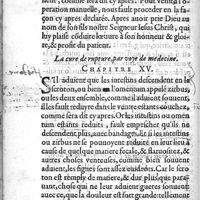 ment, comme sera dit cy apres. Pour venir à lo-
peration manuelle, vous faut proceder en la fa-
çon cy apres declarée. Apres auoir prie Dieu au
nom de son fils nostre Seigneur Iesus Christ, qu'i
luy plaise côduire l'œuure à son honneur & gloi-
re, & profit du patient.
La cure de rupture, par voye de medecine.
CHAPITRE XV.
S'Il aduient que les intestins descendent en le
scroton, ou bien l'omentum appelé zirbus,
ou les deux ensemble, comme il aduient souuent,
les faut reduyre dans le ventre estans couchez,
comme sera dit cy apres. Or si les intestins ou omen-
tum sont reduyts, faut empescher qu'ils ne
descendent, plus, auec bandages, si les intestins
ou zirbus ne pouuoyent estre reduyts, à
cause de quelque matiere fecale, & flatuositez, &
autres choses venteuses, comme bien souuent
aduient, les signes sont assez euidents. Car le scro-
ton est remply de matiere, & dur plus que parauant,
chose qui ne leur aduient gueres souuent
auec ce, que la douleur est fort grande tellement